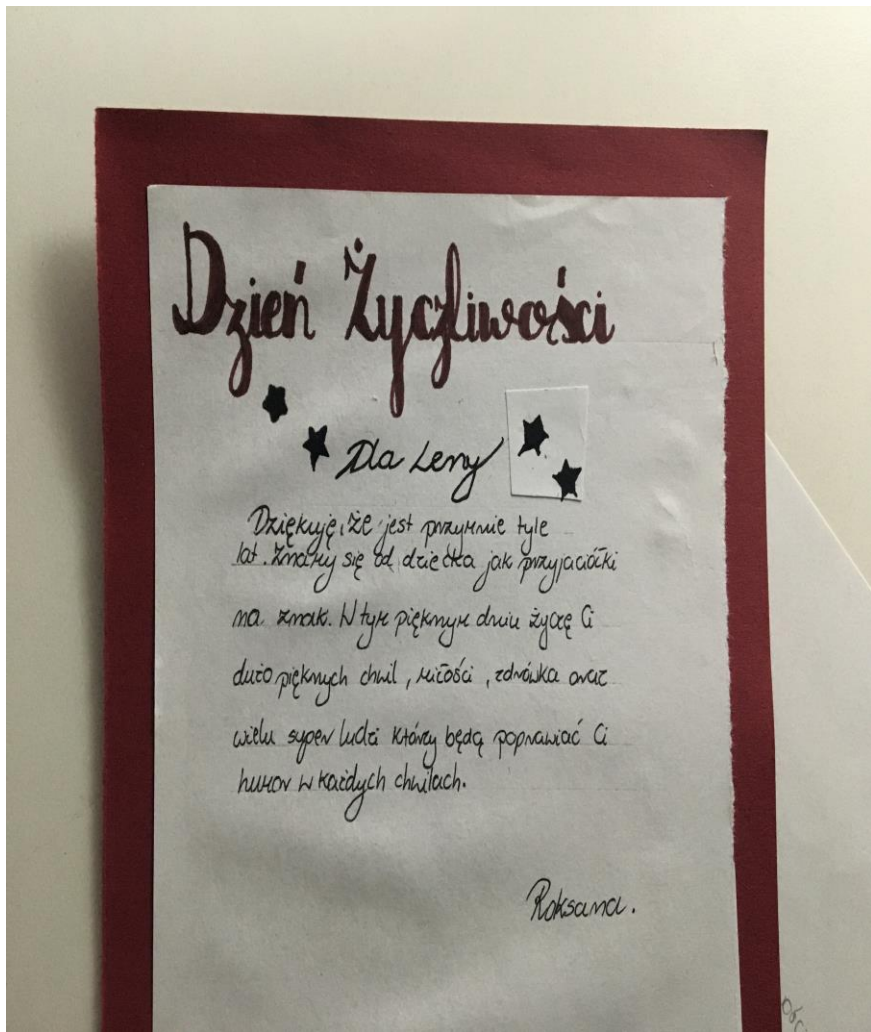 Dzień Życzliwości
Dla Leny
Dziękuję, że jest przymnie tyle
lat. Znamy się od dziecka jak przyjaciółki
na zmak. W tym pięknym dniu życzę Ci
dużo pięknych chwil, miłości, zdrówka oraz
wielu super ludzi którzy będą poprawiać Ci
humor w każdych chwilach.
Roksana.